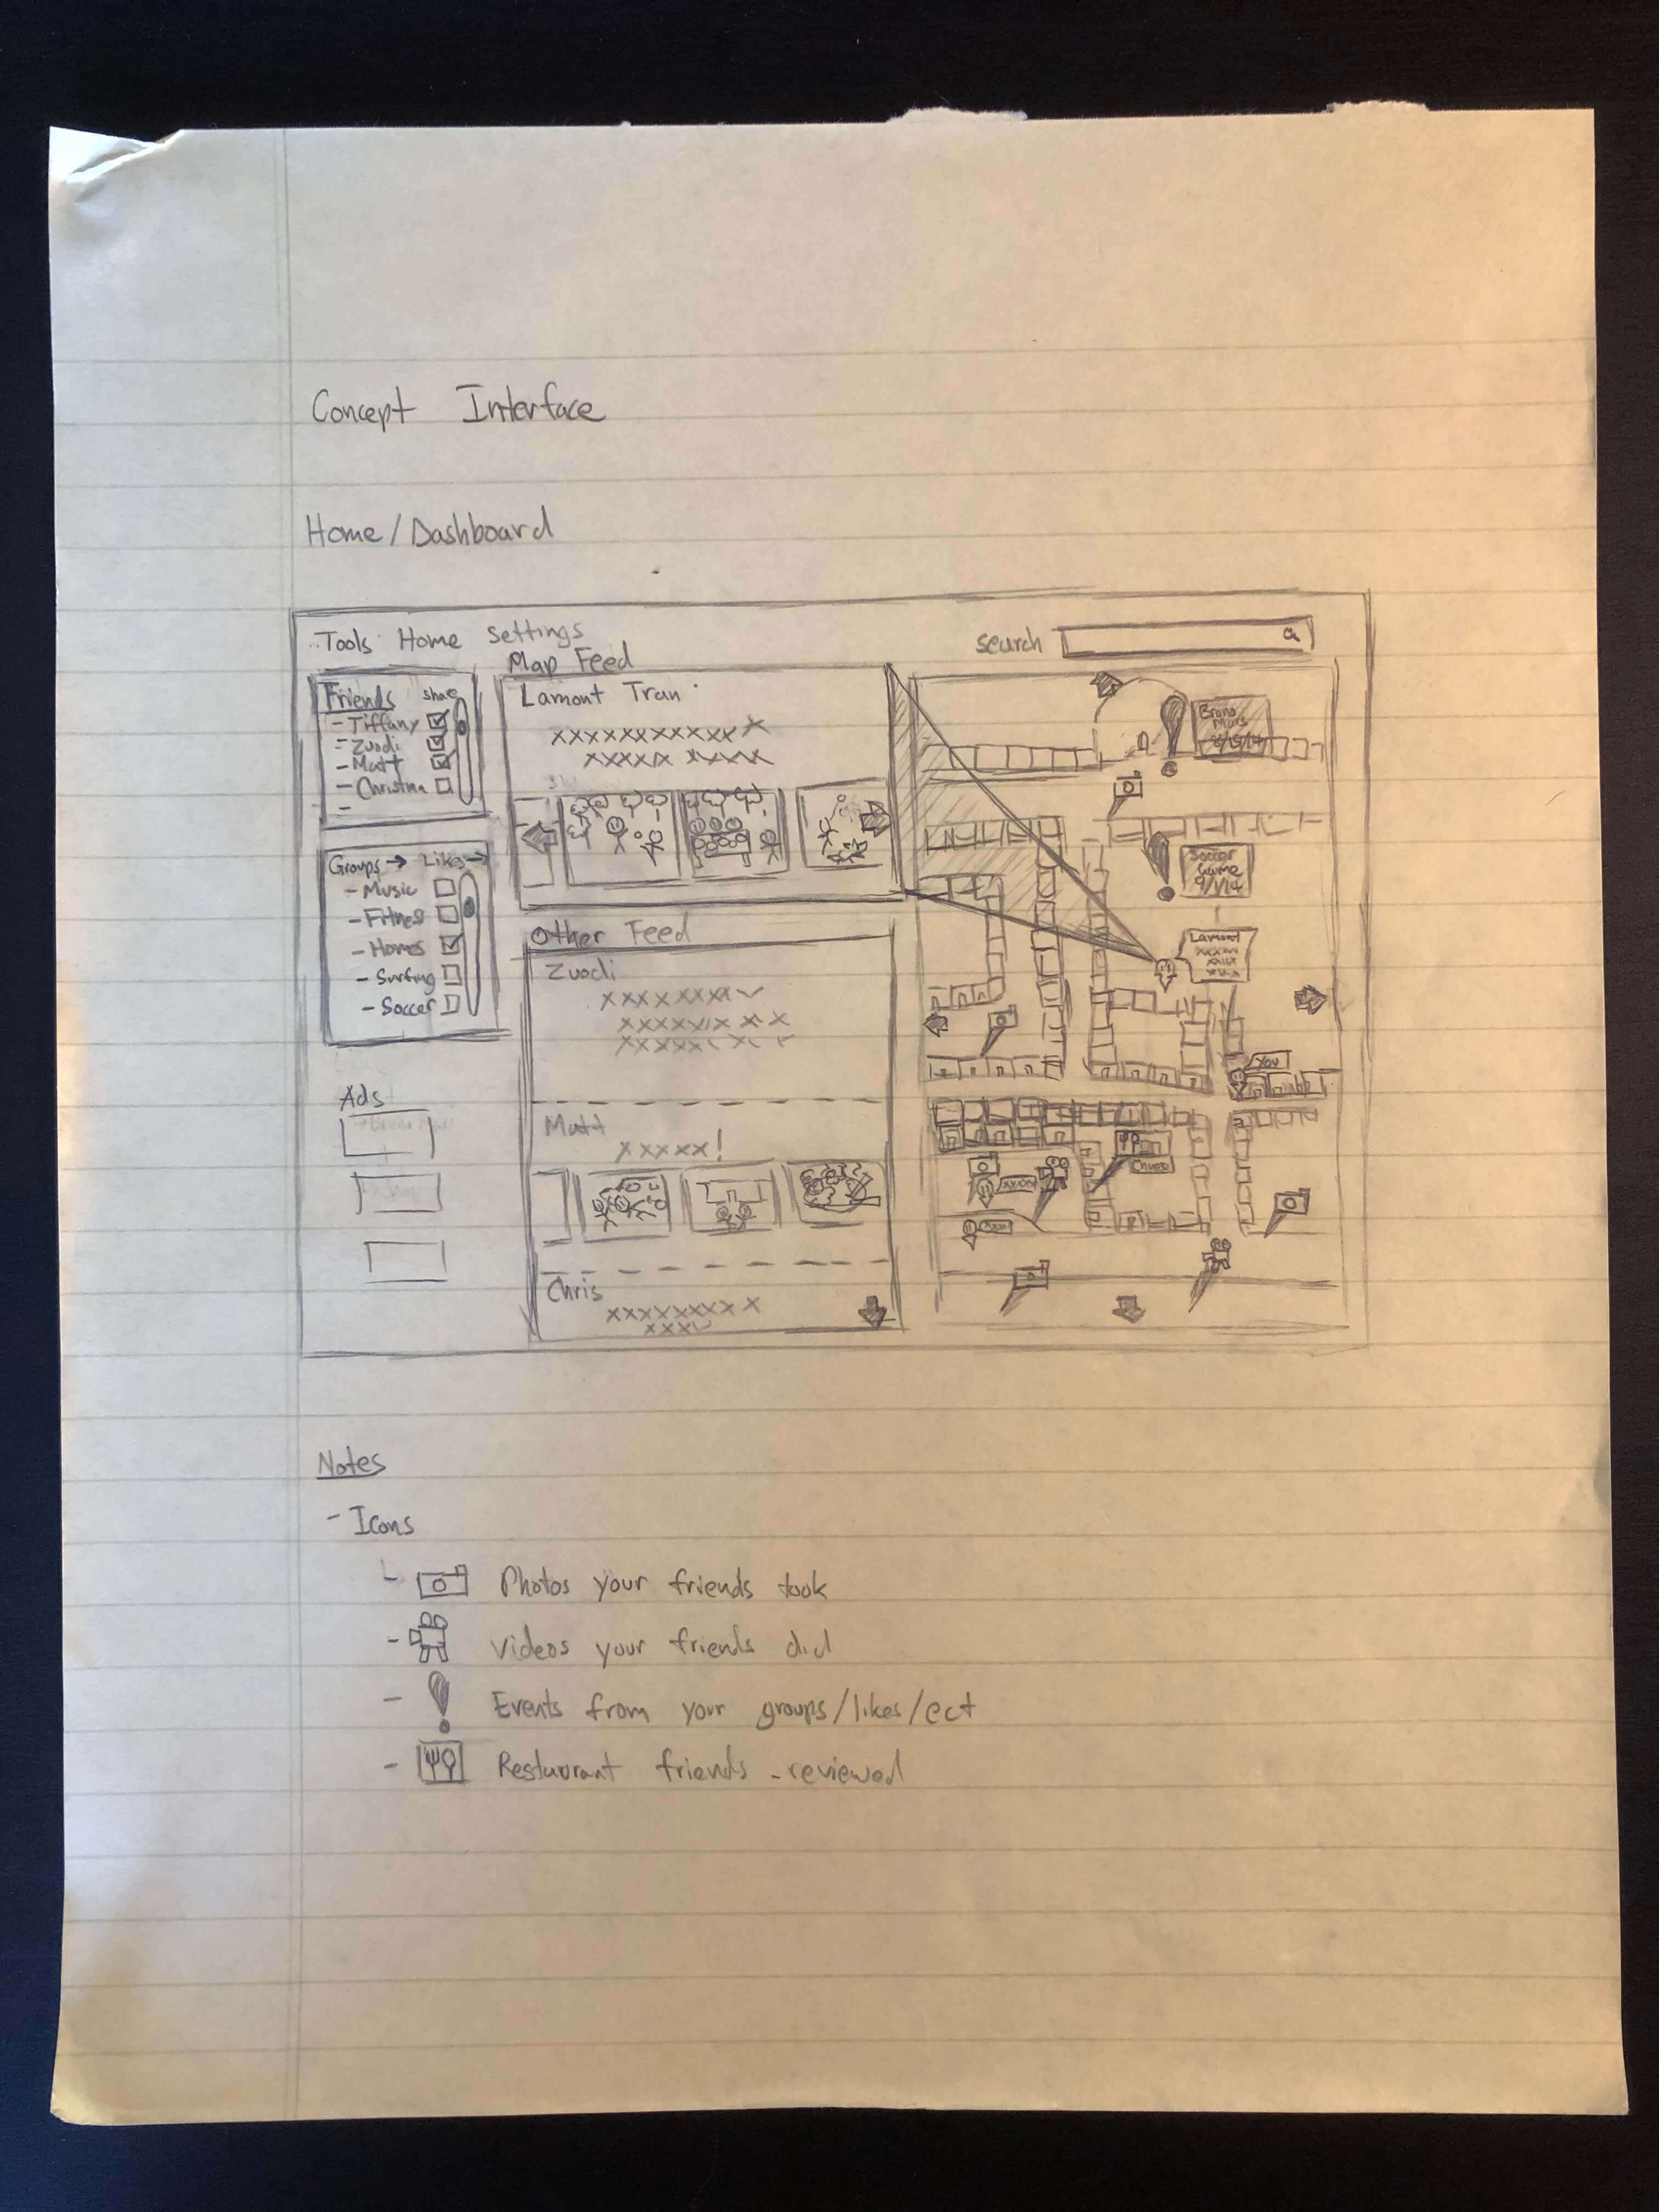 Concept Interface
Home/Dashboard
Tools Home Settings
search
Map Feed
Friends share
- Tiffany
- Zuodi
- Matt
- Christina
-
Groups → Likes →
- Music
- Fitness
- Homes
- Surfing
- Soccer
Ads
Lamont Tran
xxxxxxxxxxxx
xxxxxx xxxxx
Other Feed
Zuodi
xxxxxxxx
xxxxxxx x x
xxxxx x x
Matt
xxxxx!
Chris
xxxxxxxx x
xxxx
Bruno
Mars
Soccer
Game
9/1/14
Lamont
xxxxx
xxxx
xxx
You
Notes
- Icons
- Photos your friends took
- Videos your friends did
- Events from your groups/likes/ect
- Restaurant friends reviewed